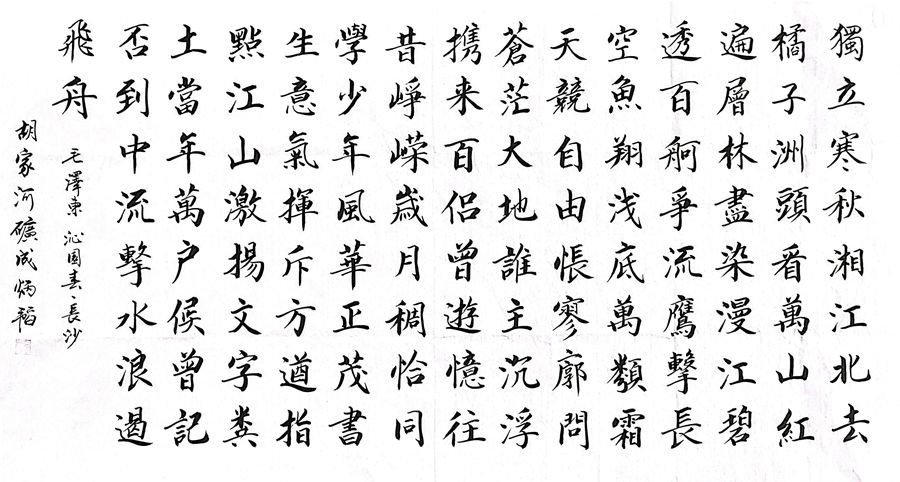 獨立寒秋湘江北去
橘子洲頭看萬山紅
遍層林盡染漫江碧
透百舸爭流鷹擊長
空魚翔浅底萬類霜
天競自由悵寥廓問
蒼茫大地誰主沉浮
携来百侣曾遊憶往
昔崢嶸歲月稠恰同
學少年風華正茂書
生意氣揮斥方遒指
點江山激揚文字糞
土當年萬户候曾記
否到中流擊水浪遏
飛舟
毛澤東 沁園春·長沙
胡家河礦成炳韜